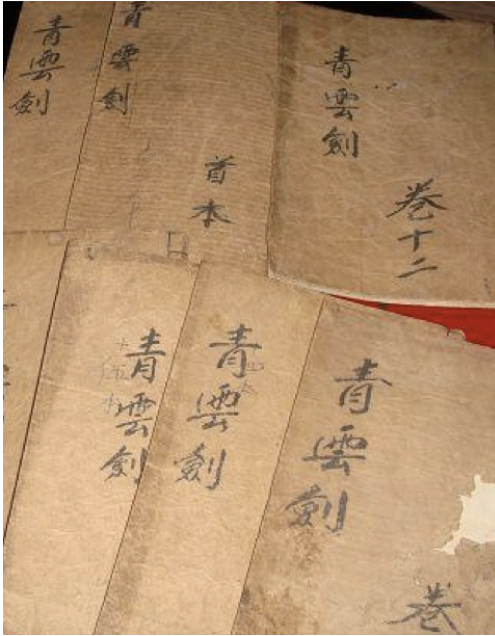 青雲劍
青雲劍
首本
青雲劍
卷十二
青雲劍
青雲劍
青雲劍
卷